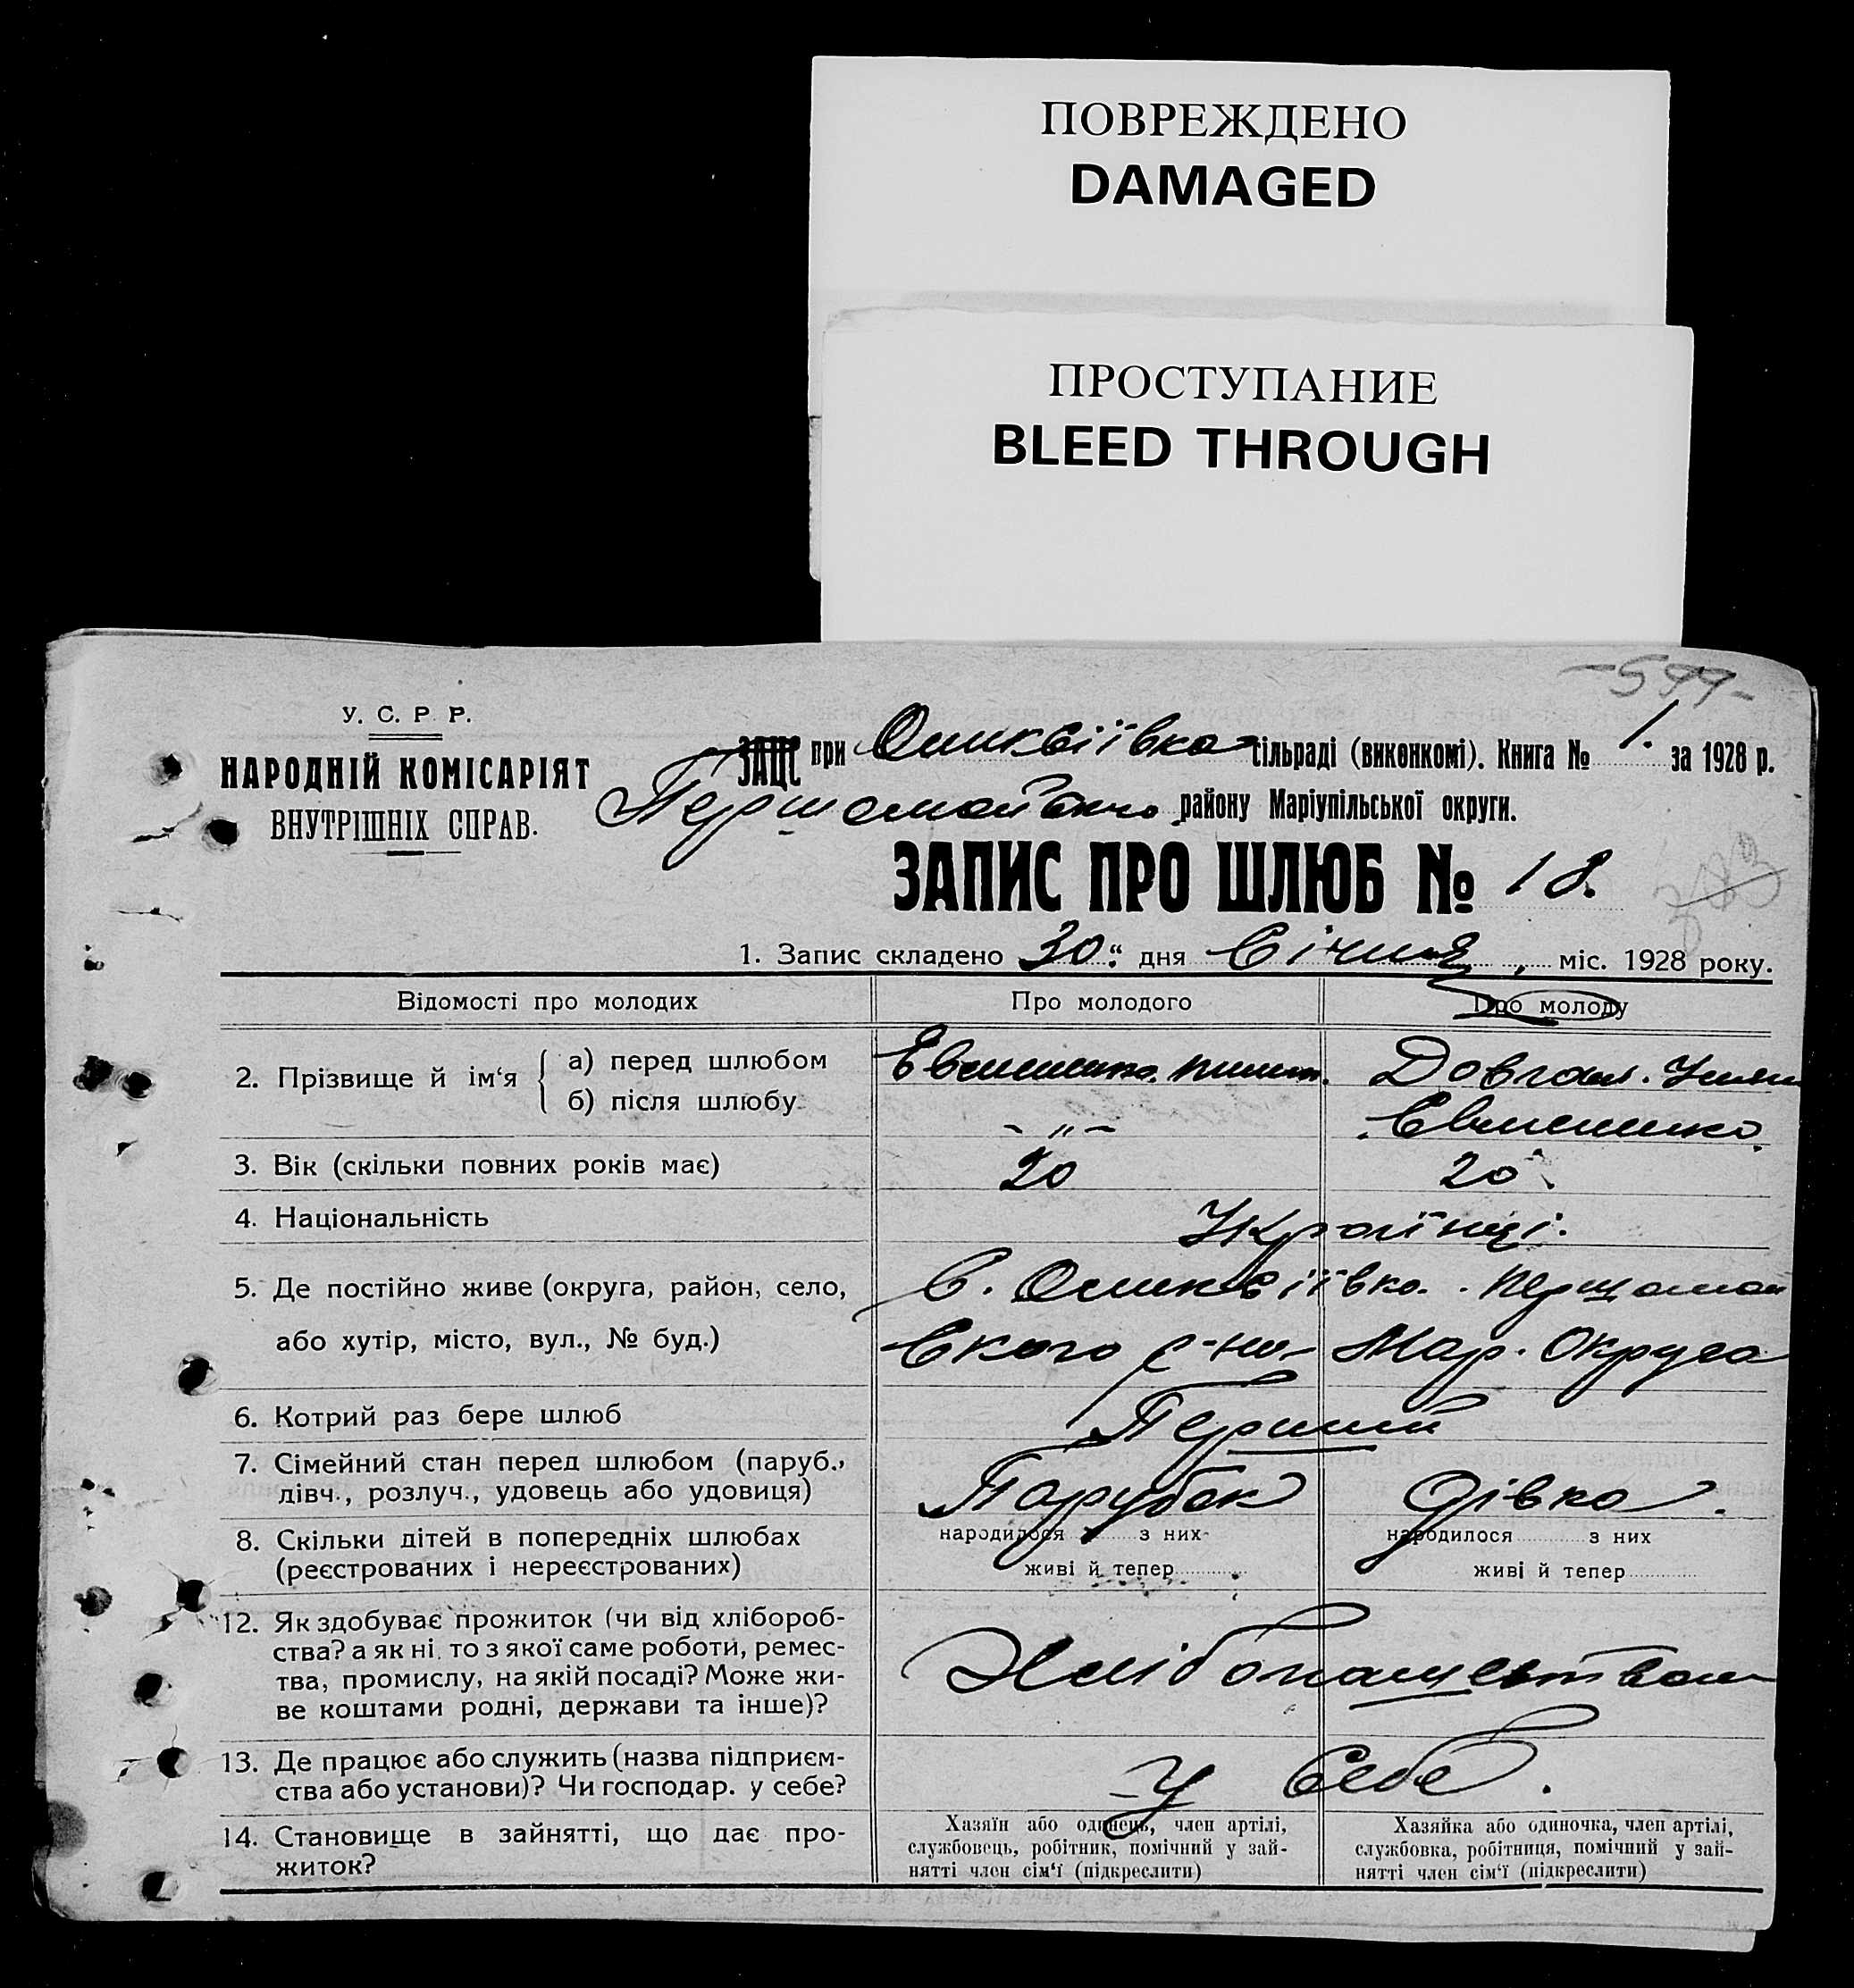 ПОВРЕЖДЕНО
DAMAGED
ПРОСТУПАНИЕ
BLEED THROUGH
У. С. Р. Р.
НАРОДНІЙ КОМІСАРІЯТ
ВНУТРІШНІХ СПРАВ.
ЗАЦС при сільраді (виконкомі). Книга № 1. за 1928 р.
району Маріупільської округи.
ЗАПИС ПРО ШЛЮБ № 18.
1. Запис складено 30 „ дня Січня, міс. 1928 року.
Відомості про молодих Про молодого Про молоду
2. Прізвище й ім‘я { а) перед шлюбом Довгал.
б) після шлюбу - „ - Євмененко.
3. Вік (скільки повних років має) 20 20
4. Національність Українці.
5. Де постійно живе (округа, район, село, С. Першомай
або хутір, місто, вул., № буд.) ського р-ну Мар. Округа
6. Котрий раз бере шлюб Перший
7. Сімейний стан перед шлюбом (паруб., Парубок Дівка.
дівч., розлуч., удовець або удовиця)
8. Скільки дітей в попередніх шлюбах народилося з них народилося з них
(реєстрованих і нереєстрованих) живі й тепер живі й тепер
12. Як здобуває прожиток (чи від хлібороб-
ства? а як ні, то з якої саме роботи, ремес- Хлібопашеством
тва, промислу, на якій посаді? Може жи-
ве коштами родні, держави та інше)?
13. Де працює або служить (назва підприєм- У Себе.
ства або установи)? Чи господар. у себе?
14. Становище в зайнятті, що дає про- Хазяїн або одинець, член артілі, Хазяйка або одиночка, член артілі,
житок? службовець, робітник, помічний у зай- службовка, робітниця, помічний у зай-
нятті член сім‘ї (підкреслити) нятті член сім‘ї (підкреслити)